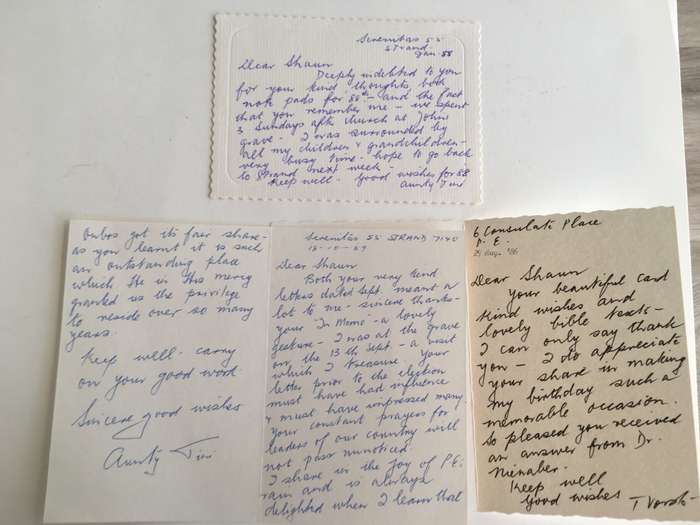 Serenitas 55
STRAND
Jan. 88
Dear Shaun
Deeply indebted to you
for your kind thoughts both
note pads for 88 - and the fact
that you remember me - we spent
3 Sundays after church at Johns
grave - I was surrounded by
all my children & grandchildren -
very busy time. hope to go back
to Strand next week -
Keep well. Good wishes for 88
Aunty Tini
got its fair share -
as you learnt it is such
an outstanding place
which He in His mercy
granted us the privilege
to reside over so many
years.
Keep well. carry
on your good work
Sincere good wishes
Aunty Tini
Serenitas 55 STRAND 7140
Dear Shaun
Both your very kind
letters dated Sept. meant a
lot to me - sincere thanks -
your "In Memo" - a lovely
gesture - I was at the grave
on the 13th Sept - a visit
which I treasure. Your
letter prior to the election
must have had influence
& must have impressed many.
Your constant prayers for
leaders of our country will
not pass unnoticed.
I share in the joy of P.E.
rain and is always
delighted when I learn that
6 Consulate Place
P.E.
Dear Shaun
your beautiful card
kind wishes and
lovely bible text -
I can only say thank
you - I do appreciate
your share in making
my birthday such a
memorable occasion.
So pleased you received
an answer from Dr.
Nienaber.
Keep well
Good wishes
T Vorster